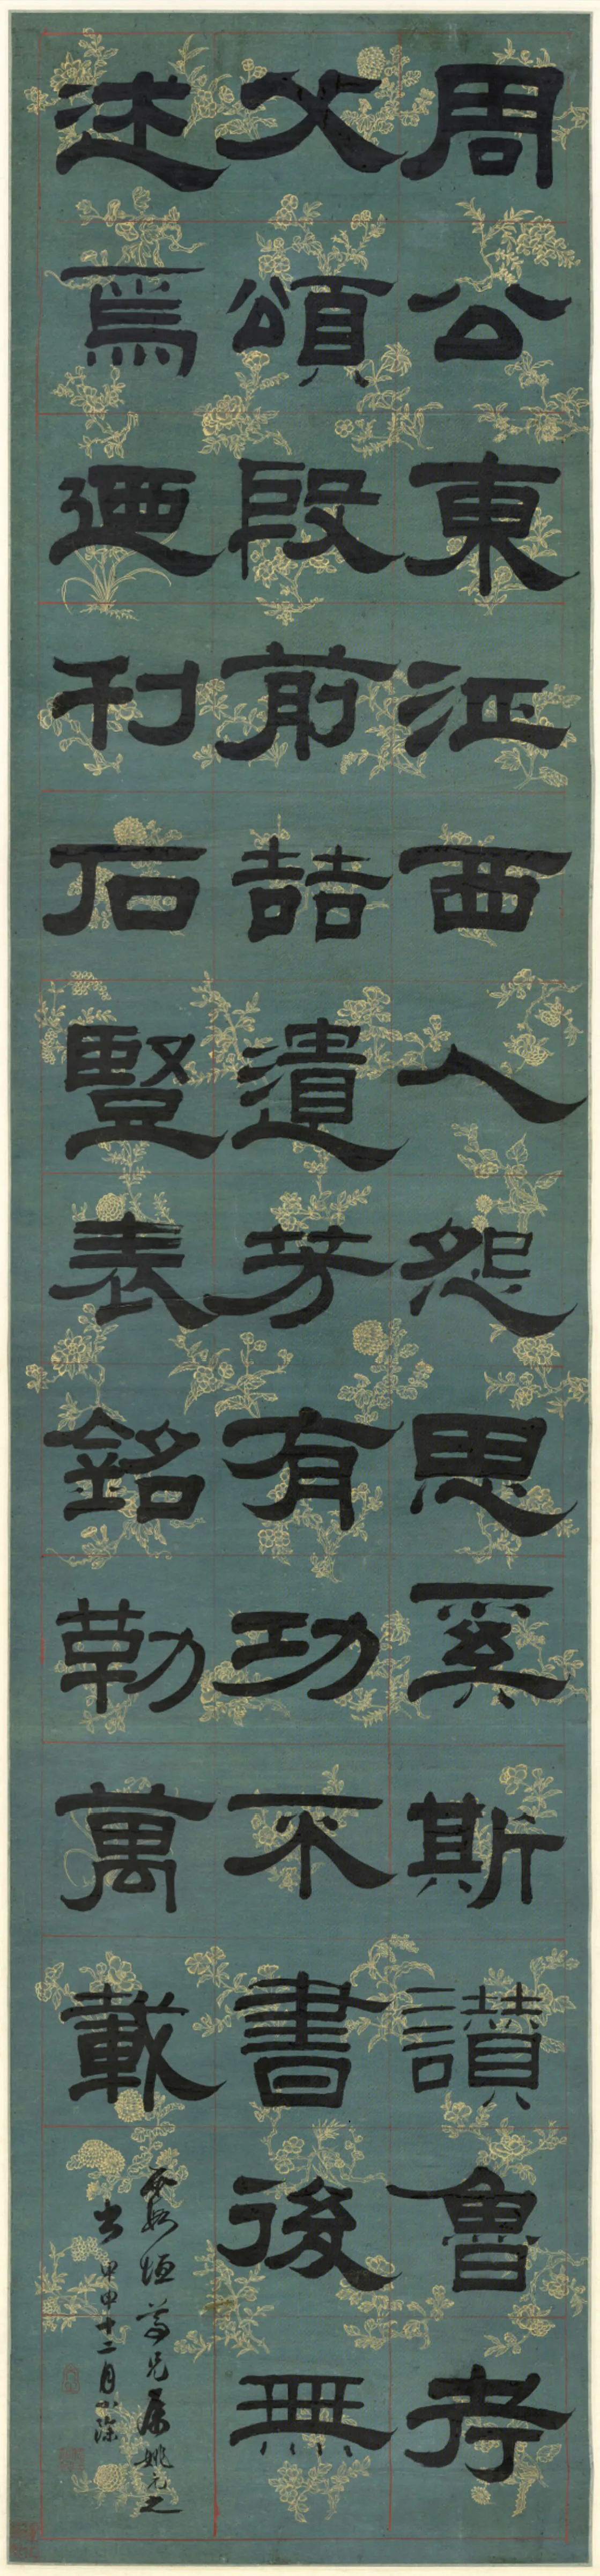 周公東征西人怨思奚斯讚魯考
父頌殷前喆遺芳有功不書後無
述焉迺刊石豎表銘勒萬載
垣尊兄屬姚元之
書甲申十二月小除